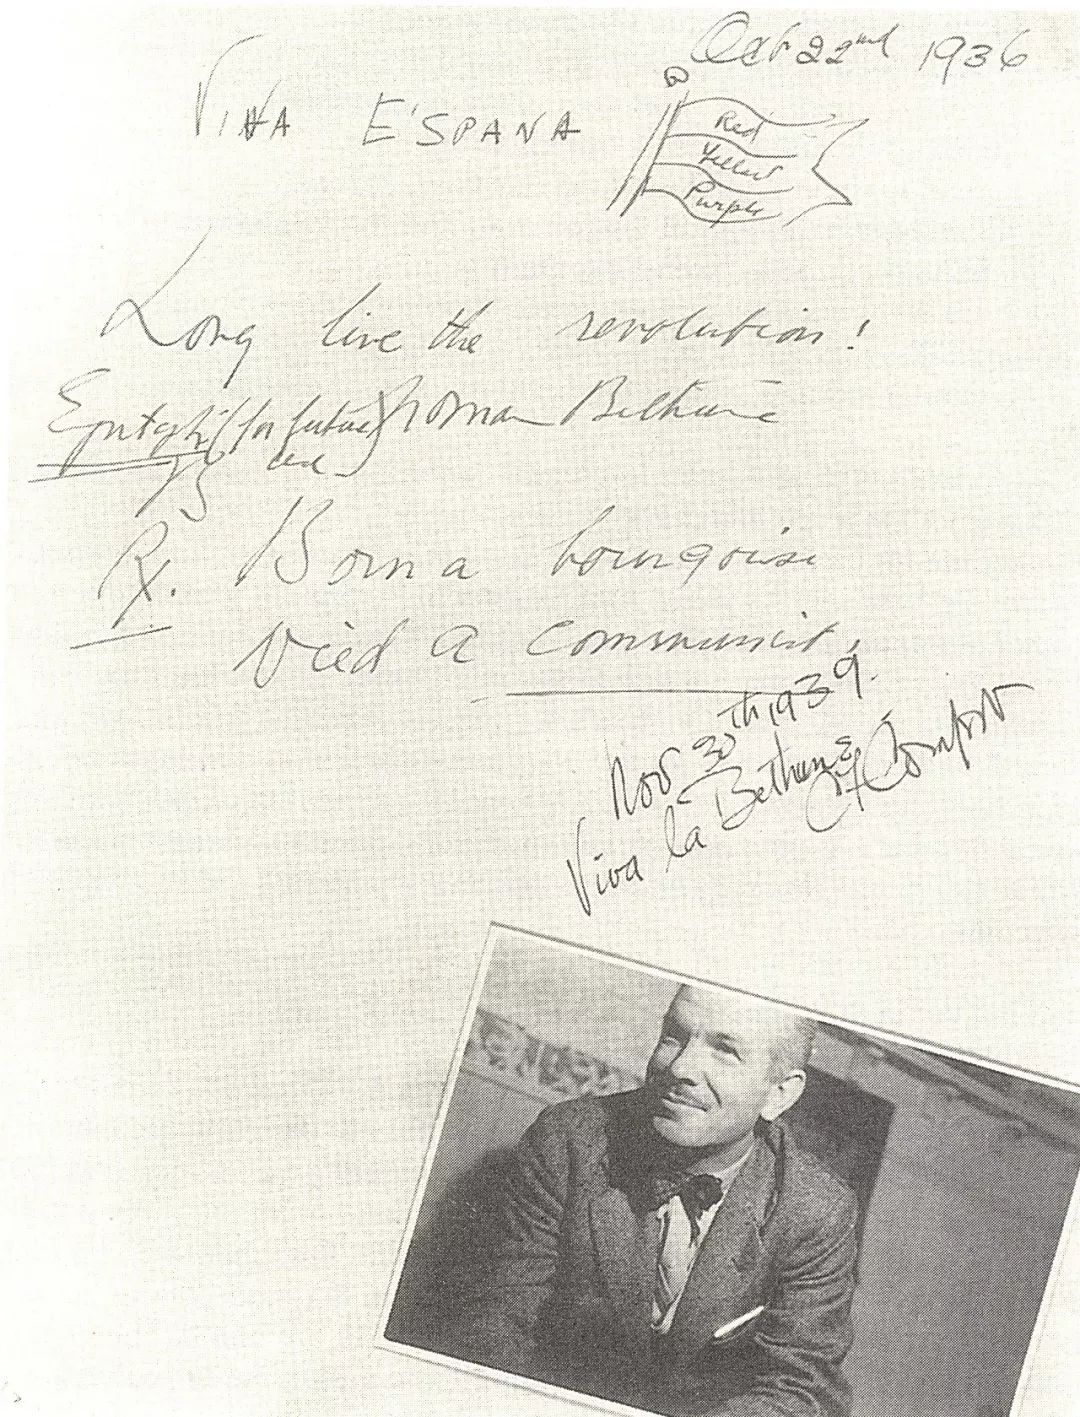 Oct 22nd 1936
VIVA E'SPANA
Red
Yellow
Purple
Long live the revolution!
Epitaph (for future Norman Bethune
use)
Rx. Born a bourgoise
Died a communist.
Nov 30th 1939.
Viva la Bethune